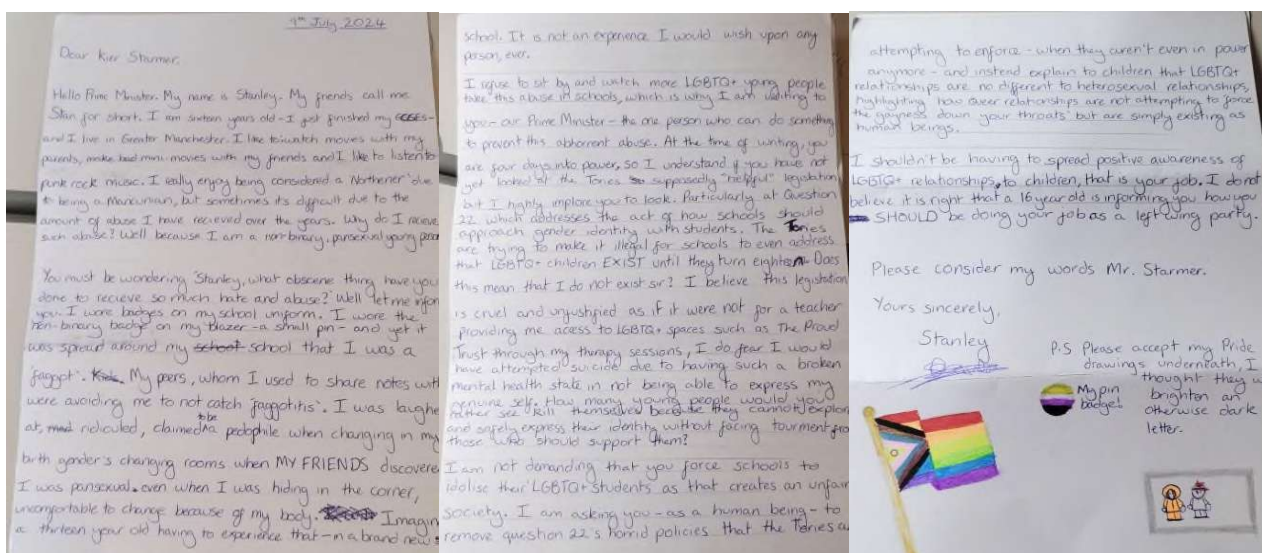 9th July 2024
Dear Kier Starmer.
Hello Prime Minister. My name is Stanley. My friends call me
Stan for short. I am sixteen years old - I just finished my GCSES -
and I live in Greater Manchester. I like to watch movies with my
parents, make bad mini-movies with my friends and I like to listen to
punk rock music. I really enjoy being considered a 'Northener' due
to being a Mancunian, but sometimes its difficult due to the
amount of abuse I have recieved over the years. Why do I recieve
such abuse? Well because I am a non-binary, pansexual young person
You must be wondering 'Stanley, what obscene thing have you
done to recieve so much hate and abuse?' Well let me inform
you. I wore badges on my school uniform. I wore the
non-binary badge on my blazer - a small pin - and yet it
was spread around my school that I was a
'faggot'. My peers, whom I used to share notes with
were avoiding me to not catch 'faggotitis'. I was laughe
at, ridiculed, claimed to be a pedophile when changing in my
birth gender's changing rooms when MY FRIENDS discovere
I was pansexual. even when I was hiding in the corner,
uncomfortable to change because of my body. Imagin
a thirteen year old having to experience that - in a brand new
school. It is not an experience I would wish upon any
person, ever.
I refuse to sit by and watch more LGBTQ+ young people
take this abuse in schools, which is why I am writing to
you - our Prime Minister - the one person who can do something
to prevent this abhorrent abuse. At the time of writing, you
are four days into power, so I understand if you have not
yet looked at the Tories supposedly "helpful" legistation
but I highly implore you to look. Particularly at Question
22 which addresses the act of how schools should
approach gender identity with students. The Tories
are trying to make it illegal for schools to even address
that LGBTQ+ children EXIST until they turn eighteen. Does
this mean that I do not exist sir? I believe this legistation
is cruel and unjustified as if it were not for a teacher
providing me access to LGBTQ+ spaces such as The Proud
Trust through my therapy sessions, I do fear I would
have attempted suicide due to having such a broken
mental health state in not being able to express my
genuine self. How many young people would you
rather see kill themselves because they cannot explore
and safely express their identity without facing tourment fro
those who should support them?
I am not demanding that you force schools to
idolise their LGBTQ+ students as that creates an unfair
society. I am asking you - as a human being - to
remove question 22's horrid policies that the Tories a
attempting to enforce - when they aren't even in power
anymore - and instead explain to children that LGBTQ+
relationships are no different to heterosexual relationships,
highlighting how queer relationships are not attempting to force
the gayness down your throats' but are simply existing as
human beings.
I shouldn't be having to spread positive awareness of
LGBTQ+ relationships, to children, that is your job. I do not
believe it is right that a 16 year old is informing you how you
SHOULD be doing your job as a left wing party.
Please consider my words Mr. Starmer.
Yours sincerely,
Stanley
P.S Please accept my Pride
drawings underneath, I
thought they w
brighten an
otherwise dark
letter.
My pin
badge!